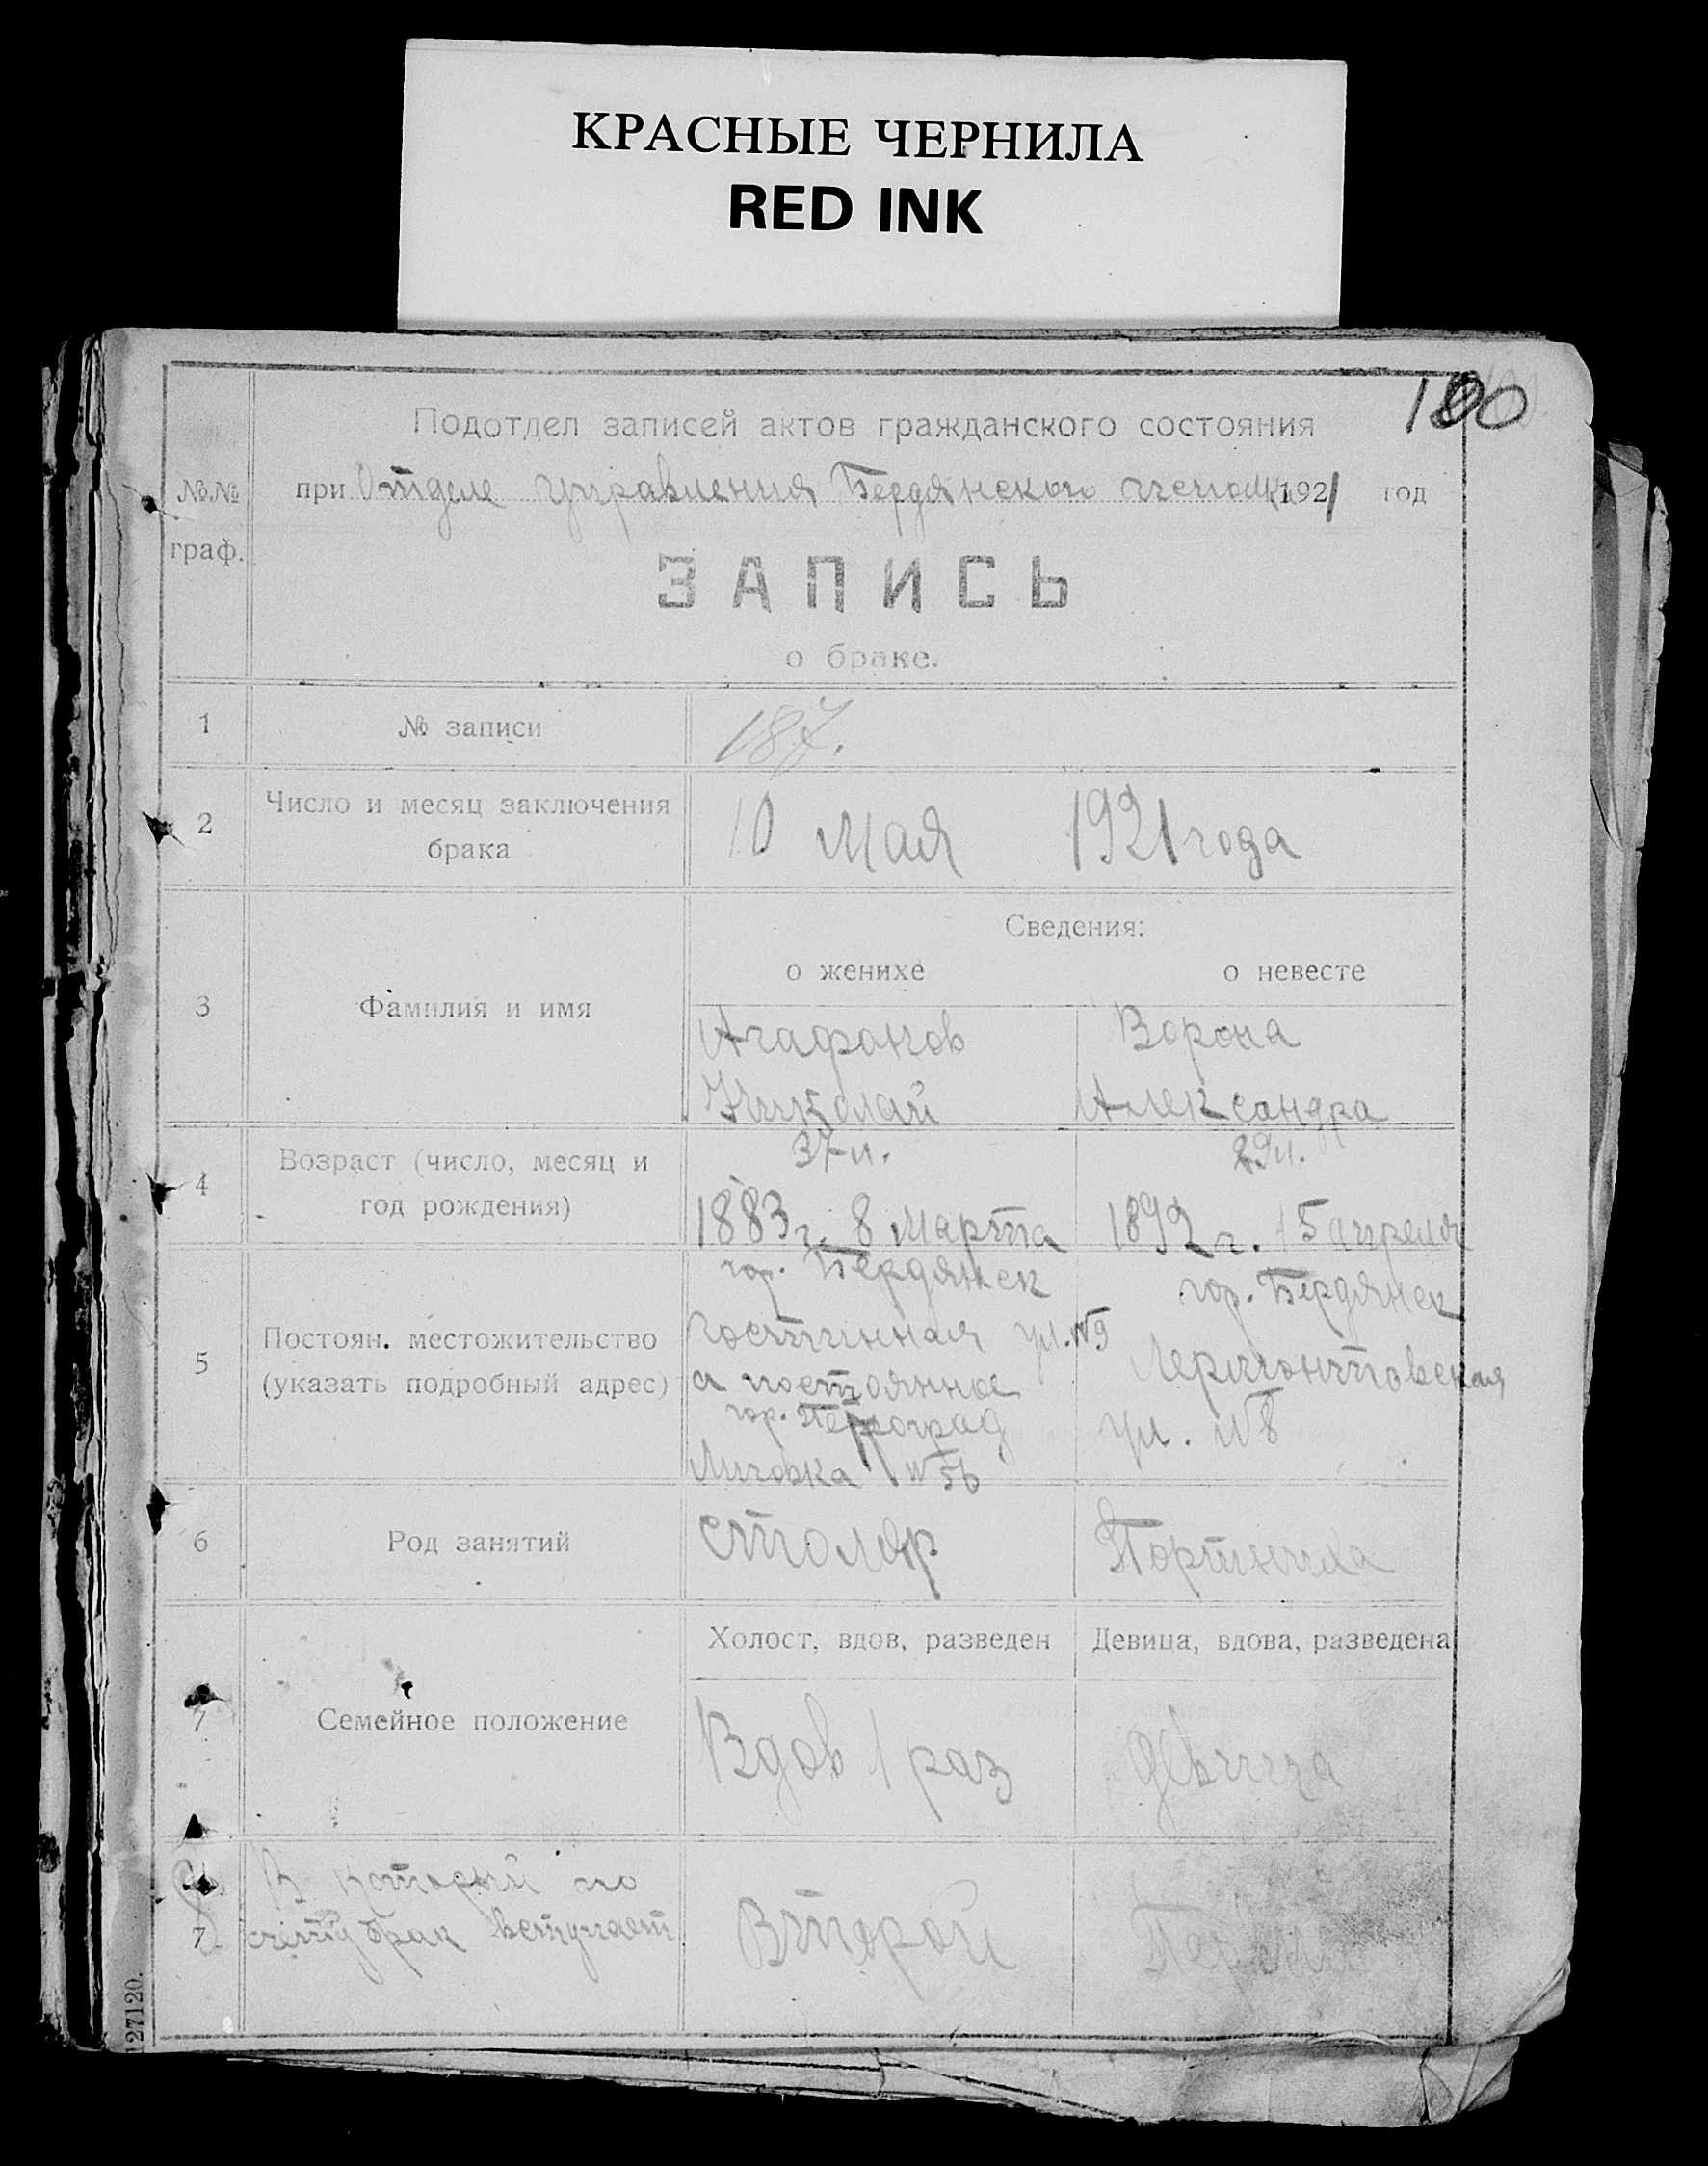 КРАСНЫЕ ЧЕРНИЛА
RED INK
Подотдел записей актов гражданского состояния
№№ граф.
при Отделе Управления Бердянского 1921 год
ЗАПИСЬ
о браке.
1 № записи 187.
2 Число и месяц заключения брака 10 Мая 1921 года
Сведения:
о женихе о невесте
3 Фамилия и имя
Агафонов Ворона
Николай Александра
37 л. 29 л.
4 Возраст (число, месяц и год рождения)
1883 г. 8 Марта 1892 г. 15 апреля
гор. Бердянск гор. Бердянск
5 Постоян. местожительство (указать подробный адрес)
Гостинная ул. №9 Лермонтовская
а постоянное ул. №8
гор. Петроград
Лиговка №56
6 Род занятий столяр Портниха
Холост, вдов, разведен Девица, вдова, разведена
7 Семейное положение Вдов 1 раз девица
7 В который по
счету брак вступает Второй Первый
127120.